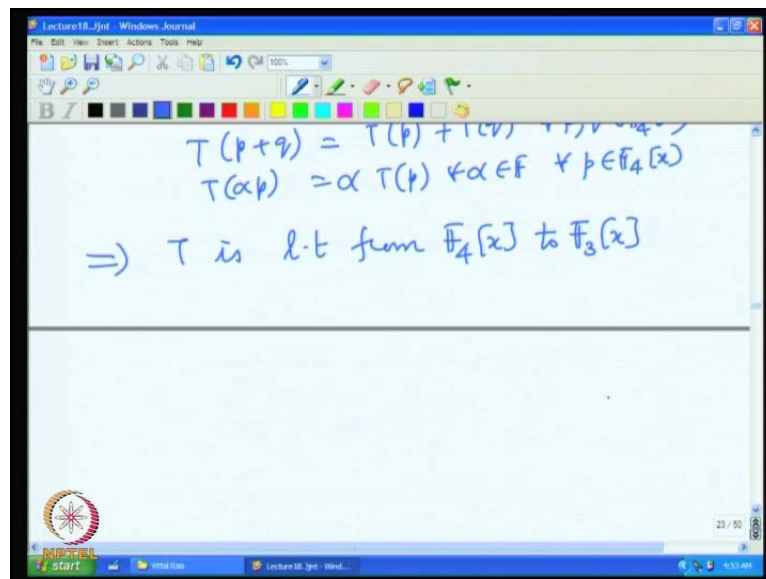 Lecture18.Jjnt - Windows Journal
File Edit View Insert Actions Tools Help
100%
B I
T(p+q) = T(p) + T(q)
T(αp) = α T(p) ∀α∈F ∀ p∈F₄[x]
⇒ T is l.t from F₄[x] to F₃[x]
23 / 50
NPTEL
start Vittal Rao Lecture18.Jjnt - Wind... 4:53 AM